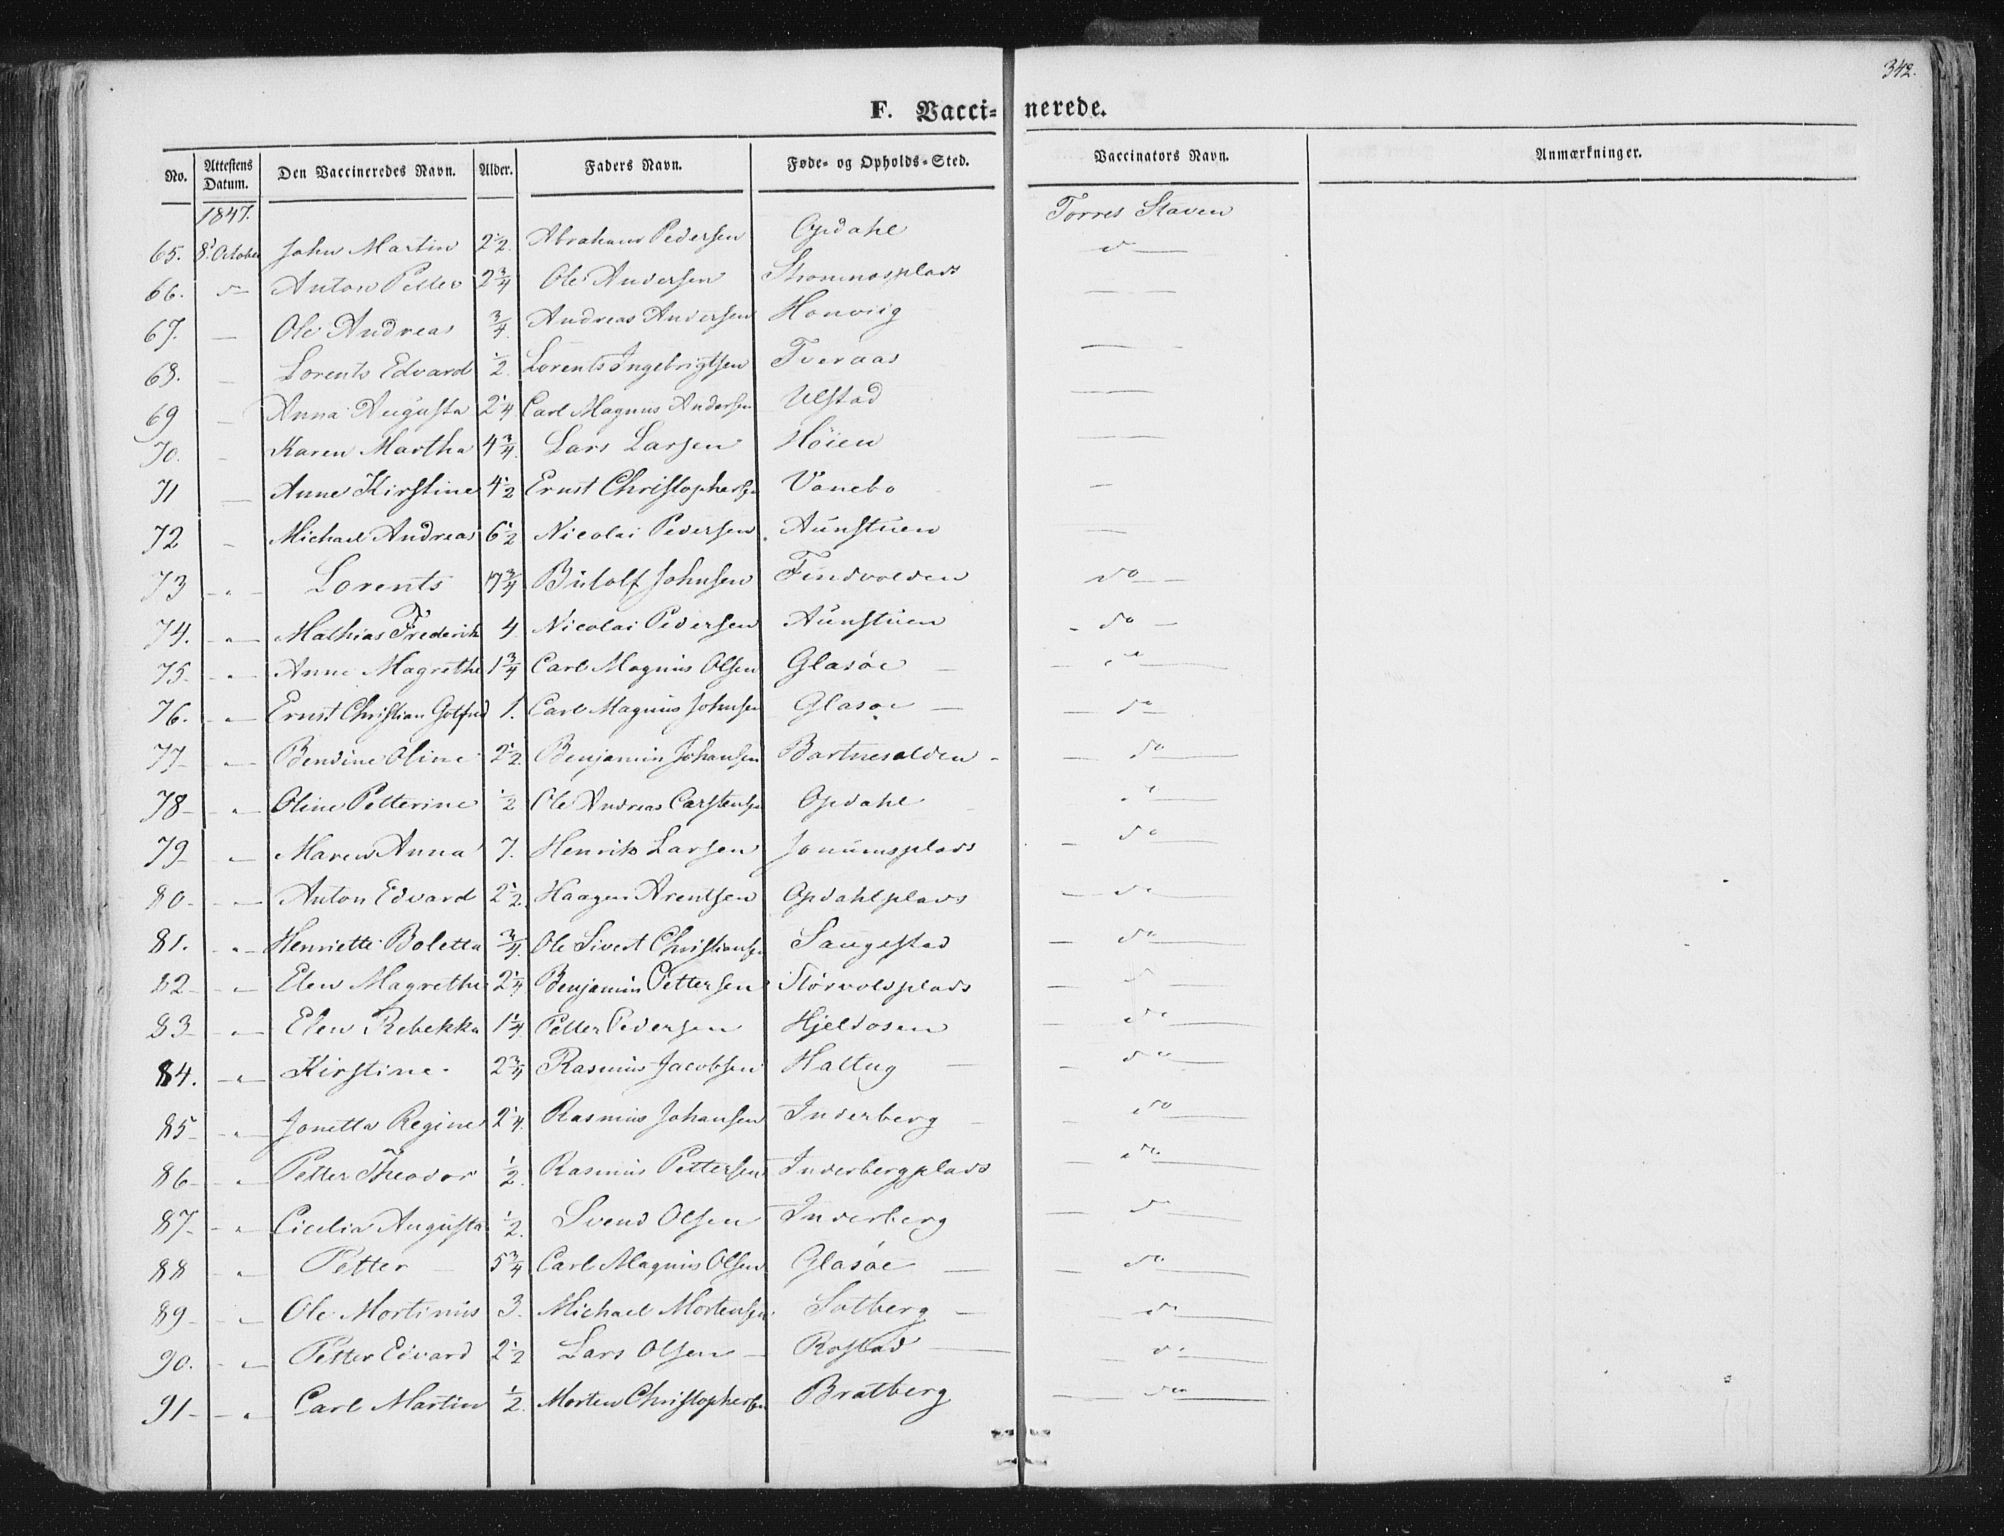 342.
F. Vaccinerede.
No. Attestens Datum. Den Vaccineredes Navn. Alder. Faders Navn. Føde- og Opholds-Sted. Vaccinators Navn. Anmærkninger.
1847. Torres Staven
65. 8' October John Martin 2 1/2. Abraham Pedersen Opdahl do —
66. do Anton Petter 2 3/4 Ole Andersen Strømnesplads — —
67. — Ole Andreas 3/4. Andreas Andersen Honviig — —
68. — Lorents Edvard 1/2. Lorents Ingebrigtsen Tveraas — —
69 — Anna Augusta 2 1/4. Carl Magnus Andersen Ulstad — —
70. — Karen Martha 4 3/4. Lars Larsen Höien —
71 — Anne Kirstine 4 1/2 Ernst Christophersen Vanebo —
72 — Michael Andreas 6 1/2 Nicolai Pedersen. Aunstuen —
73 — " — Lorents 7 3/4 Butolf Johnsen Findvolden do —
74. — " — Mathias Frederik 4 Nicolai Pedersen Aunstuen — do —
75. — " — Anne Magrethe 1 3/4 Carl Magnus Olsen Glasöe — — do —
76. — " — Ernst Christian Gotfred 1. Carl Magnus Johnsen Glasøe — — do —
77 — " — Bendine Oline 2 1/2. Benjamin Johansen Bartnesalden — — do —
78 — " — Oline Petterine 1/2 Ole Andreas Carstensen Opdahl — do —
79 — " — Maren Anna 7. Henrik Larsen Jonumsplads — do —
80 — " — Anton Edvard 2 1/2. Haagen Arentsen Opdahlplads — do —
81. — " — Henriette Boletta 3/4. Ole Sivert Christiansen Saugestad — do —
82 — " — Elen Magrethe 2 1/4 Benjamin Pettersen Störvolsplads — do —
83 — " — Elen Rebekka 1 1/4 Petter Pedersen Hjeldosen — do —
84. — " — Kirstine 2 3/4 Rasmus Jacobsen Haltug — — do —
85 — " — Jonetta Regine 2 1/4. Rasmus Johansen Inderberg — — do —
86 — " — Petter Theodor 1/2. Rasmus Pettersen Inderbergplads — do —
87 — " — Cicelia Augusta 1/2. Svend Olsen Inderberg — do —
88 — " — Petter — 5 3/4 Carl Magnus Olsen Glasöe — — do —
89 — " — Ole Mortinus 3. Michael Mortensen Salberg — — do —
90. — " — Petter Edvard 2 1/2 Lars Olsen — Rostad — — do —
91 — " — Carl Martin 1/2. Morten Christophersen Bratberg — do —